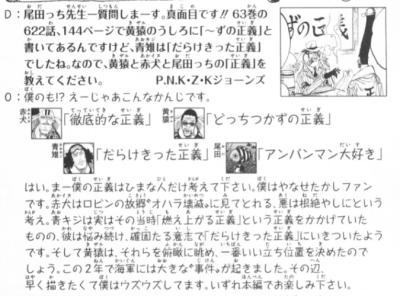 D：尾田っち先生一質問しまーす。真面目です!! 63巻の
622話、144ページで黄猿のうしろに「〜ずの正義」と
書いてあるんですけど、青雉は「だらけきった正義」
でしたね。なので、黄猿と赤犬と尾田っちの「正義」を
教えてください。 P.N.K・Z・Kジョーンズ
ずの正義
O：僕のも!? えーじゃあこんなかんじです。
赤犬「徹底的な正義」 黄猿「どっちつかずの正義」
青雉「だらけきった正義」 尾田「アンパンマン大好き」
はい。まー僕の正義はひまな人だけ考えて下さい。僕はやなせたかしファン
です。赤犬はロビンの故郷"オハラ壊滅"に見てとれる、悪は根絶やしにという
考え。青キジは実はその当時「燃え上がる正義」というのをかかげていた
ものの、彼は悩み続け、確固たる意志で「だらけきった正義」にいきついたよう
です。そして黄猿は、それらを俯瞰に眺め、一番いい立ち位置を決めたので
しょう。この2年で海軍には大きな"事件"が起きました。その辺、
早く描きたくて僕はウズウズしてます。いずれ本編でお楽しみ下さい。